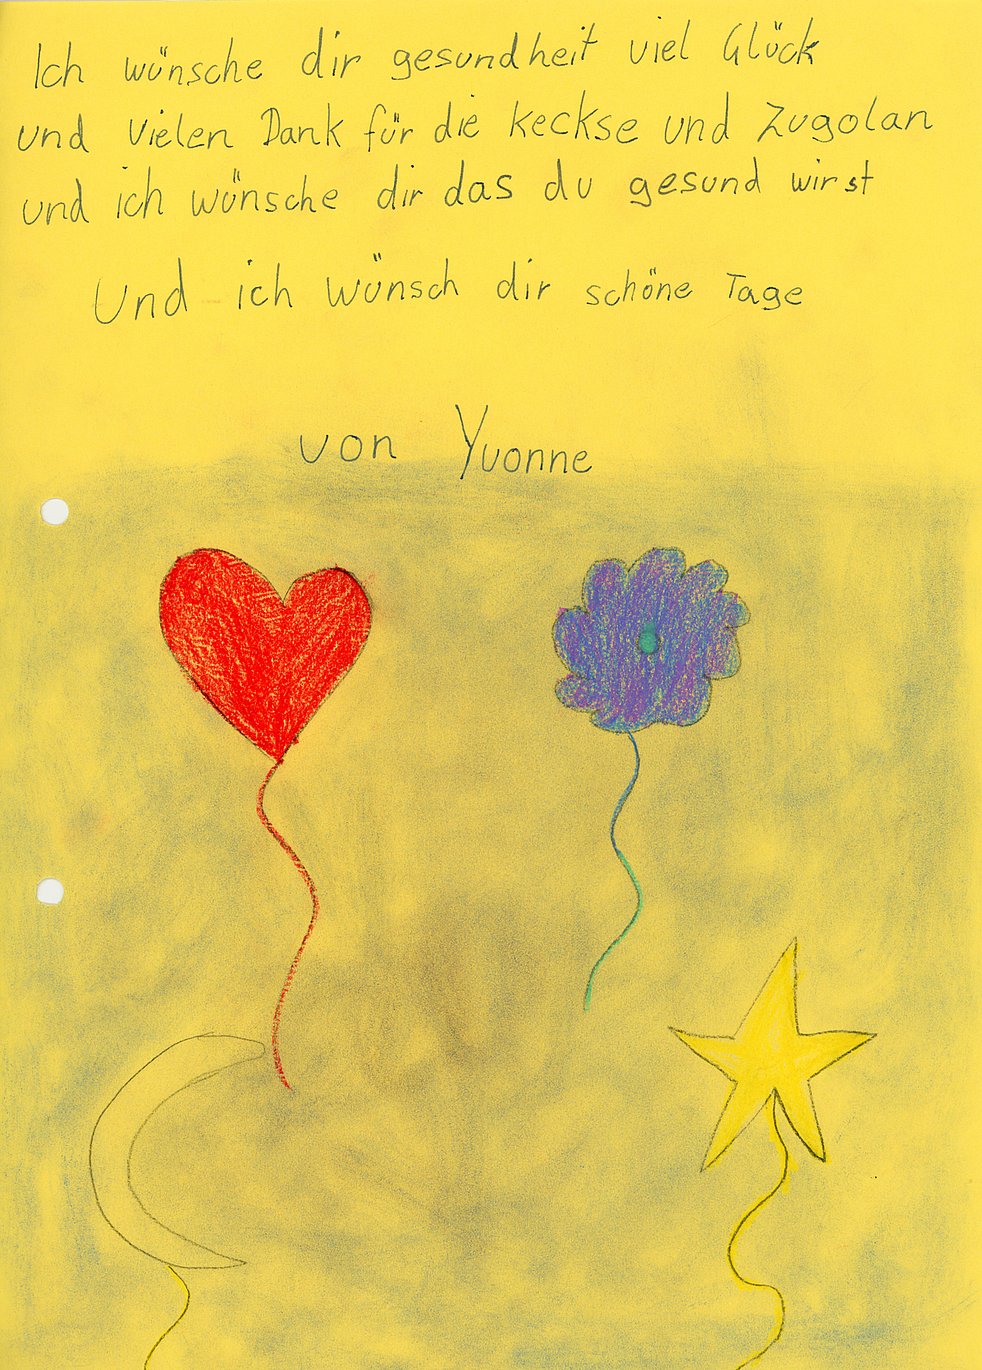 Ich wünsche dir gesundheit viel Glück
und vielen Dank für die keckse und Zugolan
und ich wünsche dir das du gesund wirst
Und ich wünsch dir schöne Tage
von Yvonne